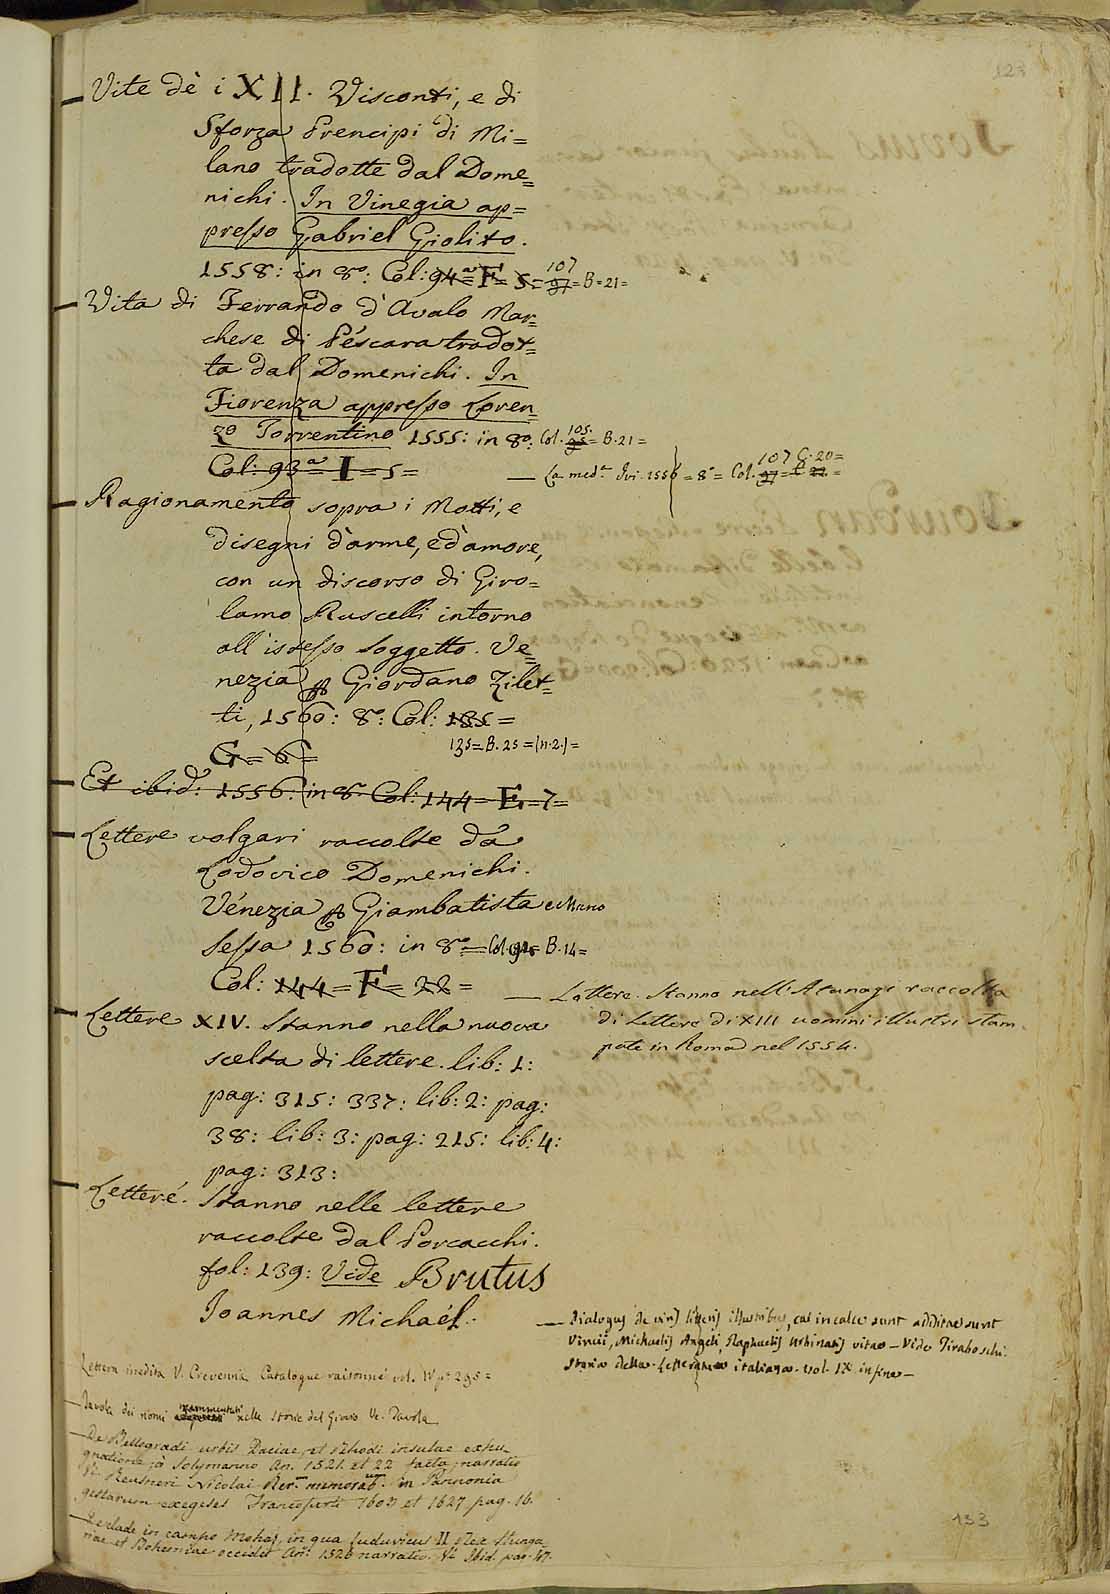 123
Vite dè i XII. Visconti, e di
Sforza Prencipi di Mi=
lano tradotte dal Dome=
nichi. In Vinegia ap=
presso Gabriel Giolito.
1558: in 8º: Col: 94ª = F = 5 = 107 97 = B = 21 =
Vita di Ferrando d'Avalo Mar=
chese di Péscara tradot=
ta dal Domenichi. In
Fiorenza appresso Loren=
zo Torrentino 1555: in 8º: Col. 105. 95 = B. 21 =
Col: 93ª = I = 5 =
— La med.ª Ivi 1556 = 8º = Col. 107 97 = C. 20 =
Ragionamento sopra i Motti, e
disegni d'arme, e d'amore,
con un discorso di Giro=
lamo Ruscelli intorno
all'istesso soggetto. Ve=
nezia Giordano Zilet=
ti, 1560: 8º: Col: 185 =
G = 6 =
135 = B. 25 = (n. 2.) =
Et ibid: 1556: in 8º Col: 144 = E = 7 =
Lettere volgari raccolte da
Lodovico Domenichi.
Vénezia Giambatista e Mno
Sessa 1560: in 8º = Col. B. 14 =
Col: 144 = F = 22 =
— Lettere. Stanno nell'Atanagi raccolta
di Lettere di XIII uomini illustri stam
pate in Roma nel 1554.
Lettere XIV. Stanno nella nuova
scelta di lettere. lib: 1:
pag: 315: 337: lib: 2: pag:
38: lib: 3: pag: 215: lib: 4:
pag: 313:
Lettere. Stanno nelle lettere
raccolte dal Porcacchi.
fol: 139: Vide Brutus
Joannes Michaél.
— Dialogus de viris litteris illustribus, cui in calce sunt additae sunt
Vincii, Michaelis Angeli, Raphaelis Urbinatis vitae — Vide Tiraboschi
Storia della Letteratura italiana. vol. IX in fine —
Lettera inedita V. Crevenna Catalogue raisonné vol. IV p. 295 =
— Tavola dei nomi nelle Storie del Giovio V. Tavola
— De Bellogradi urbis Daciae, et Rhodi insulae expu
gnatione, à Solymanno An. 1521. et 22 facta, narratio
Vº Reusneri Nicolai Rer.m memorab.um in Pannonia
gestarum exegeses Francofurti 1603 et 1627 pag. 16.
— De clade in campo Mohaz, in qua Ludovicus II Rex Hunga
riae et Bohemiae occidit An: 1526 narratio. Vº Ibid. pag. 47.
153